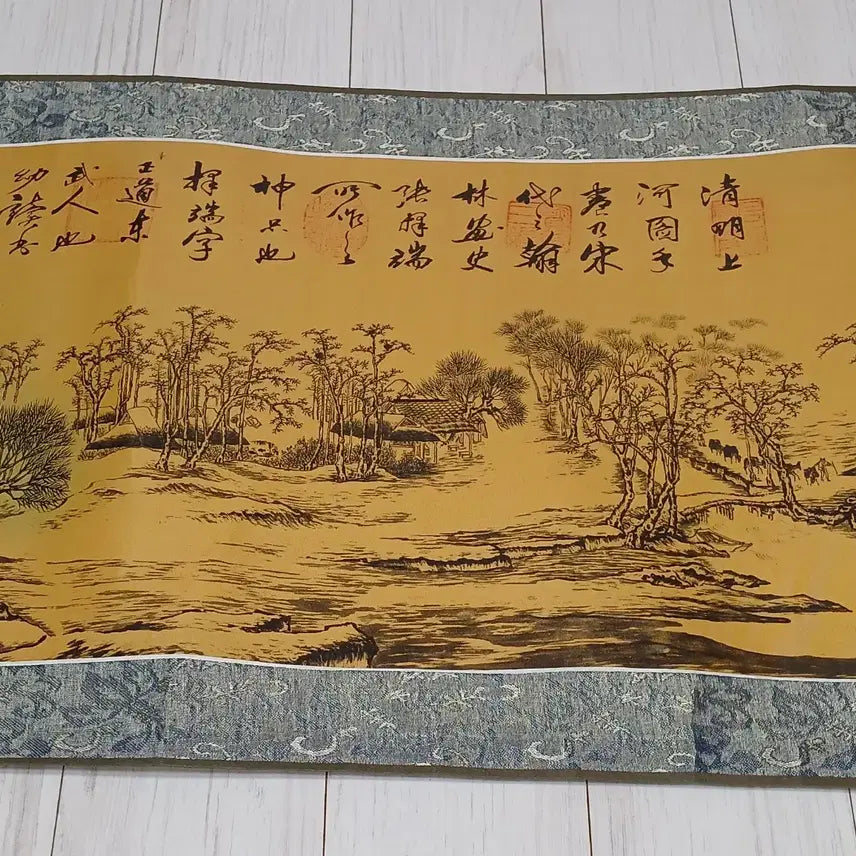 清明上
河圖手
卷乃宋
代之翰
林畫史
張擇端
所作之
神品也
擇端字
正道東
武人也
幼讀書